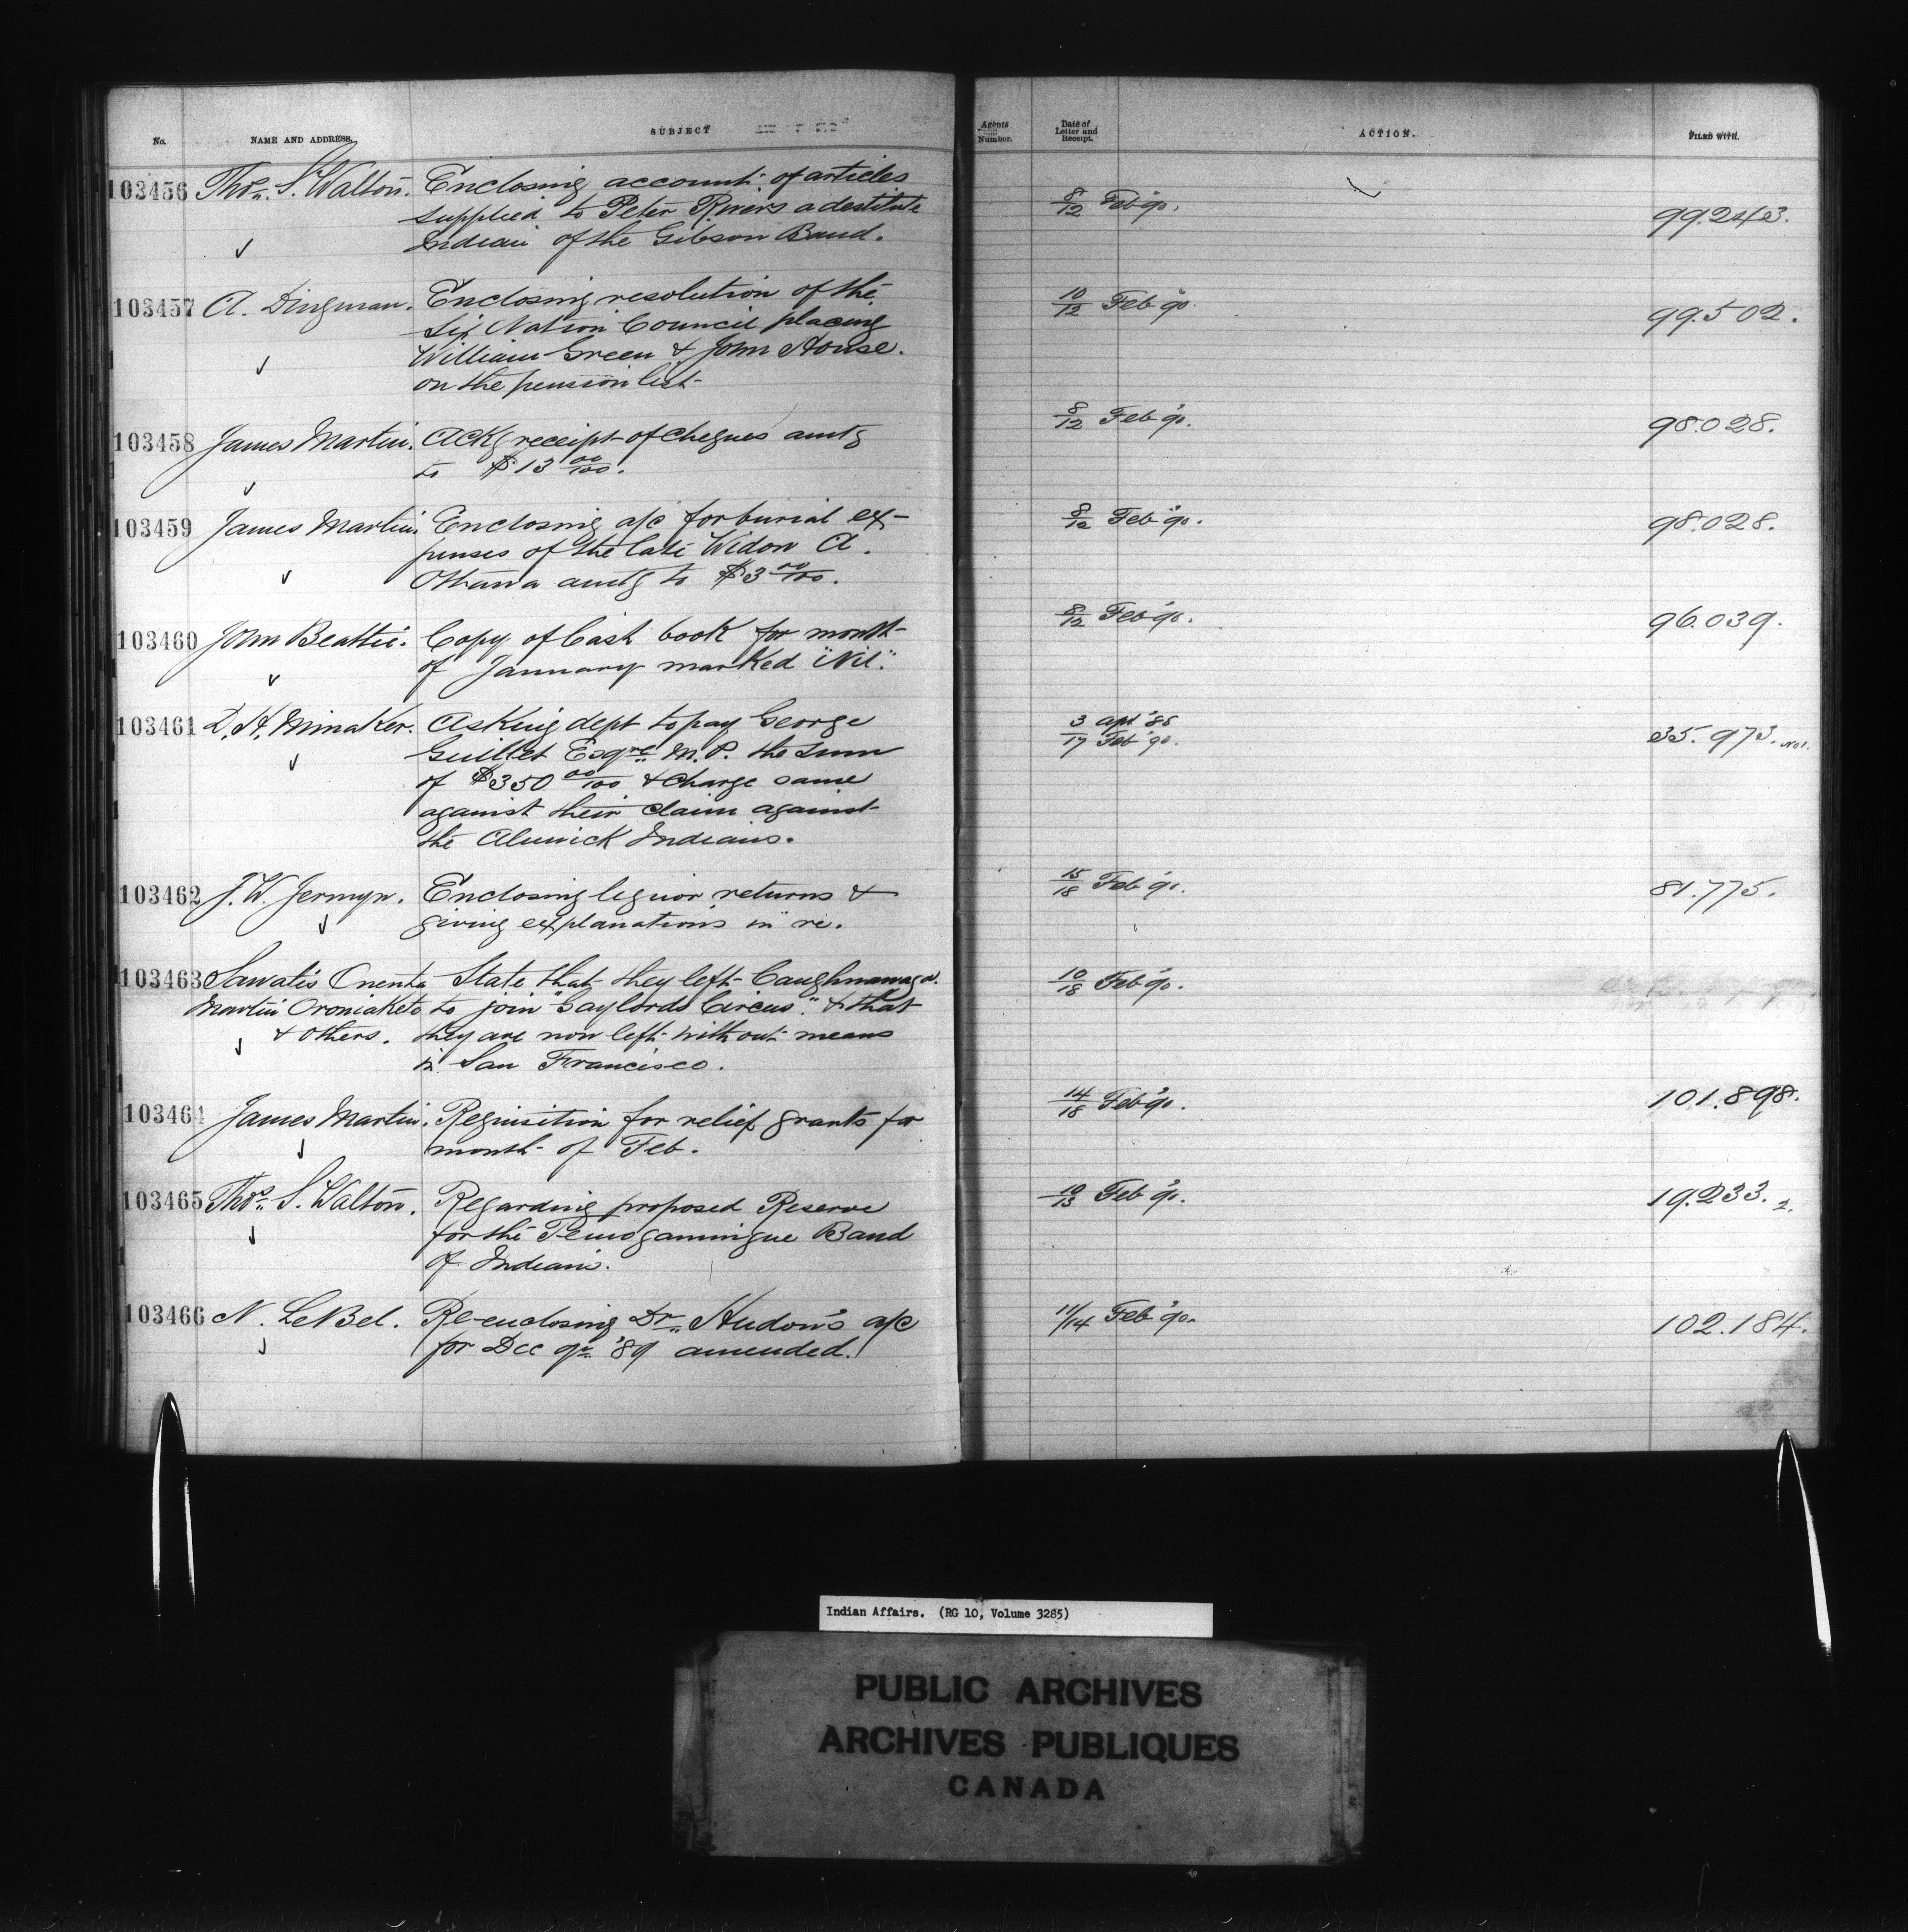 No.
NAME AND ADDRESS.
SUBJECT
Agents
Number.
Date of
Letter and
Receipt.
ACTION.
FILED WITH.
103456 Thos. S. Walton. Enclosing account of articles
supplied to Peter Rivers a destitute
Indian of the Gibson Band.
8/12 Feb '90.
99.243.
103457 A. Dingman. Enclosing resolution of the
Six Nation Council placing
William Green & John House.
on the pension list
10/12 Feb '90.
99.502.
103458 James Martin. Ackg receipt of cheques amtg
to $13 00/100.
8/12 Feb '90.
98.028.
103459 James Martin. Enclosing a/c for burial ex-
penses of the late Widow A.
Ottawa amtg to $3 00/100.
8/12 Feb '90.
98.028.
103460 John Beattie. Copy of Cash book for month
of January marked "Nil".
8/12 Feb '90.
96.039.
103461 D. H. Minaker. Asking dept to pay George
Guillet Esqre M.P. the sum
of $350 00/100 & charge same
against their claim against
the Alnwick Indians.
3 Apl '88
17 Feb '90.
35.973. No 1.
103462 J. W. Jermyn. Enclosing liquor returns &
giving explanations in re.
15/18 Feb '90.
81.775.
103463 Sawatis Onenta State that they left Caughnawaga.
Martin Oroniaketo to join "Gaylords Circus". & that
& others. they are now left without means
in San Francisco.
10/18 Feb '90.
103464 James Martin. Requisition for relief grants for
month of Feb.
14/18 Feb '90.
101.898.
103465 Thos. S. Walton. Regarding proposed Reserve
for the Temogamingue Band
of Indians.
10/13 Feb '90.
19.233. 2.
103466 N. LeBel. Re-enclosing Dr. Hudon's a/c
for Dec qr. '89 amended.
11/14 Feb '90.
102.184.
Indian Affairs. (RG 10, Volume 3285)
PUBLIC ARCHIVES
ARCHIVES PUBLIQUES
CANADA